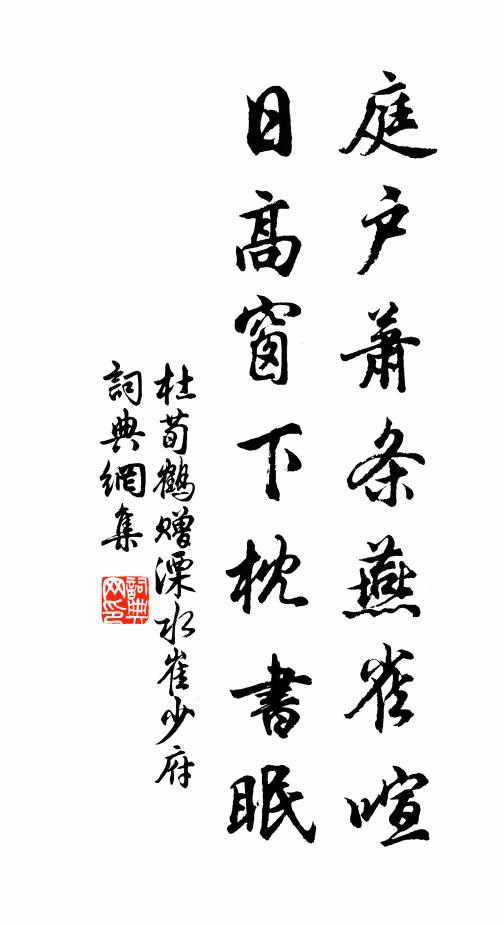 庭户萧条燕雀喧
日高窗下枕書眠
杜荀鶴贈溧水崔少府
詞典網集
詞典网印